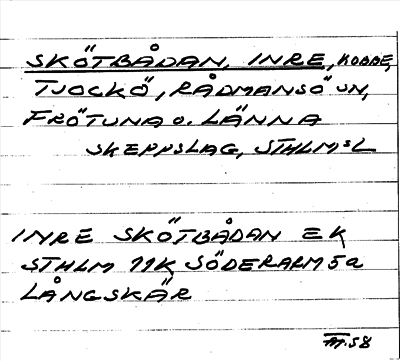 SKÖTBÅDAN, INRE, KOBBE,
TJOCKÖ, RÅDMANSÖ SN,
FRÖTUNA O. LÄNNA
SKEPPSLAG, STHLMS L
INRE SKÖTBÅDAN EK
STHLM 11K SÖDERARM 5a
LÅNGSKÄR